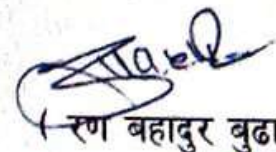 ( रण बहादुर बुढा